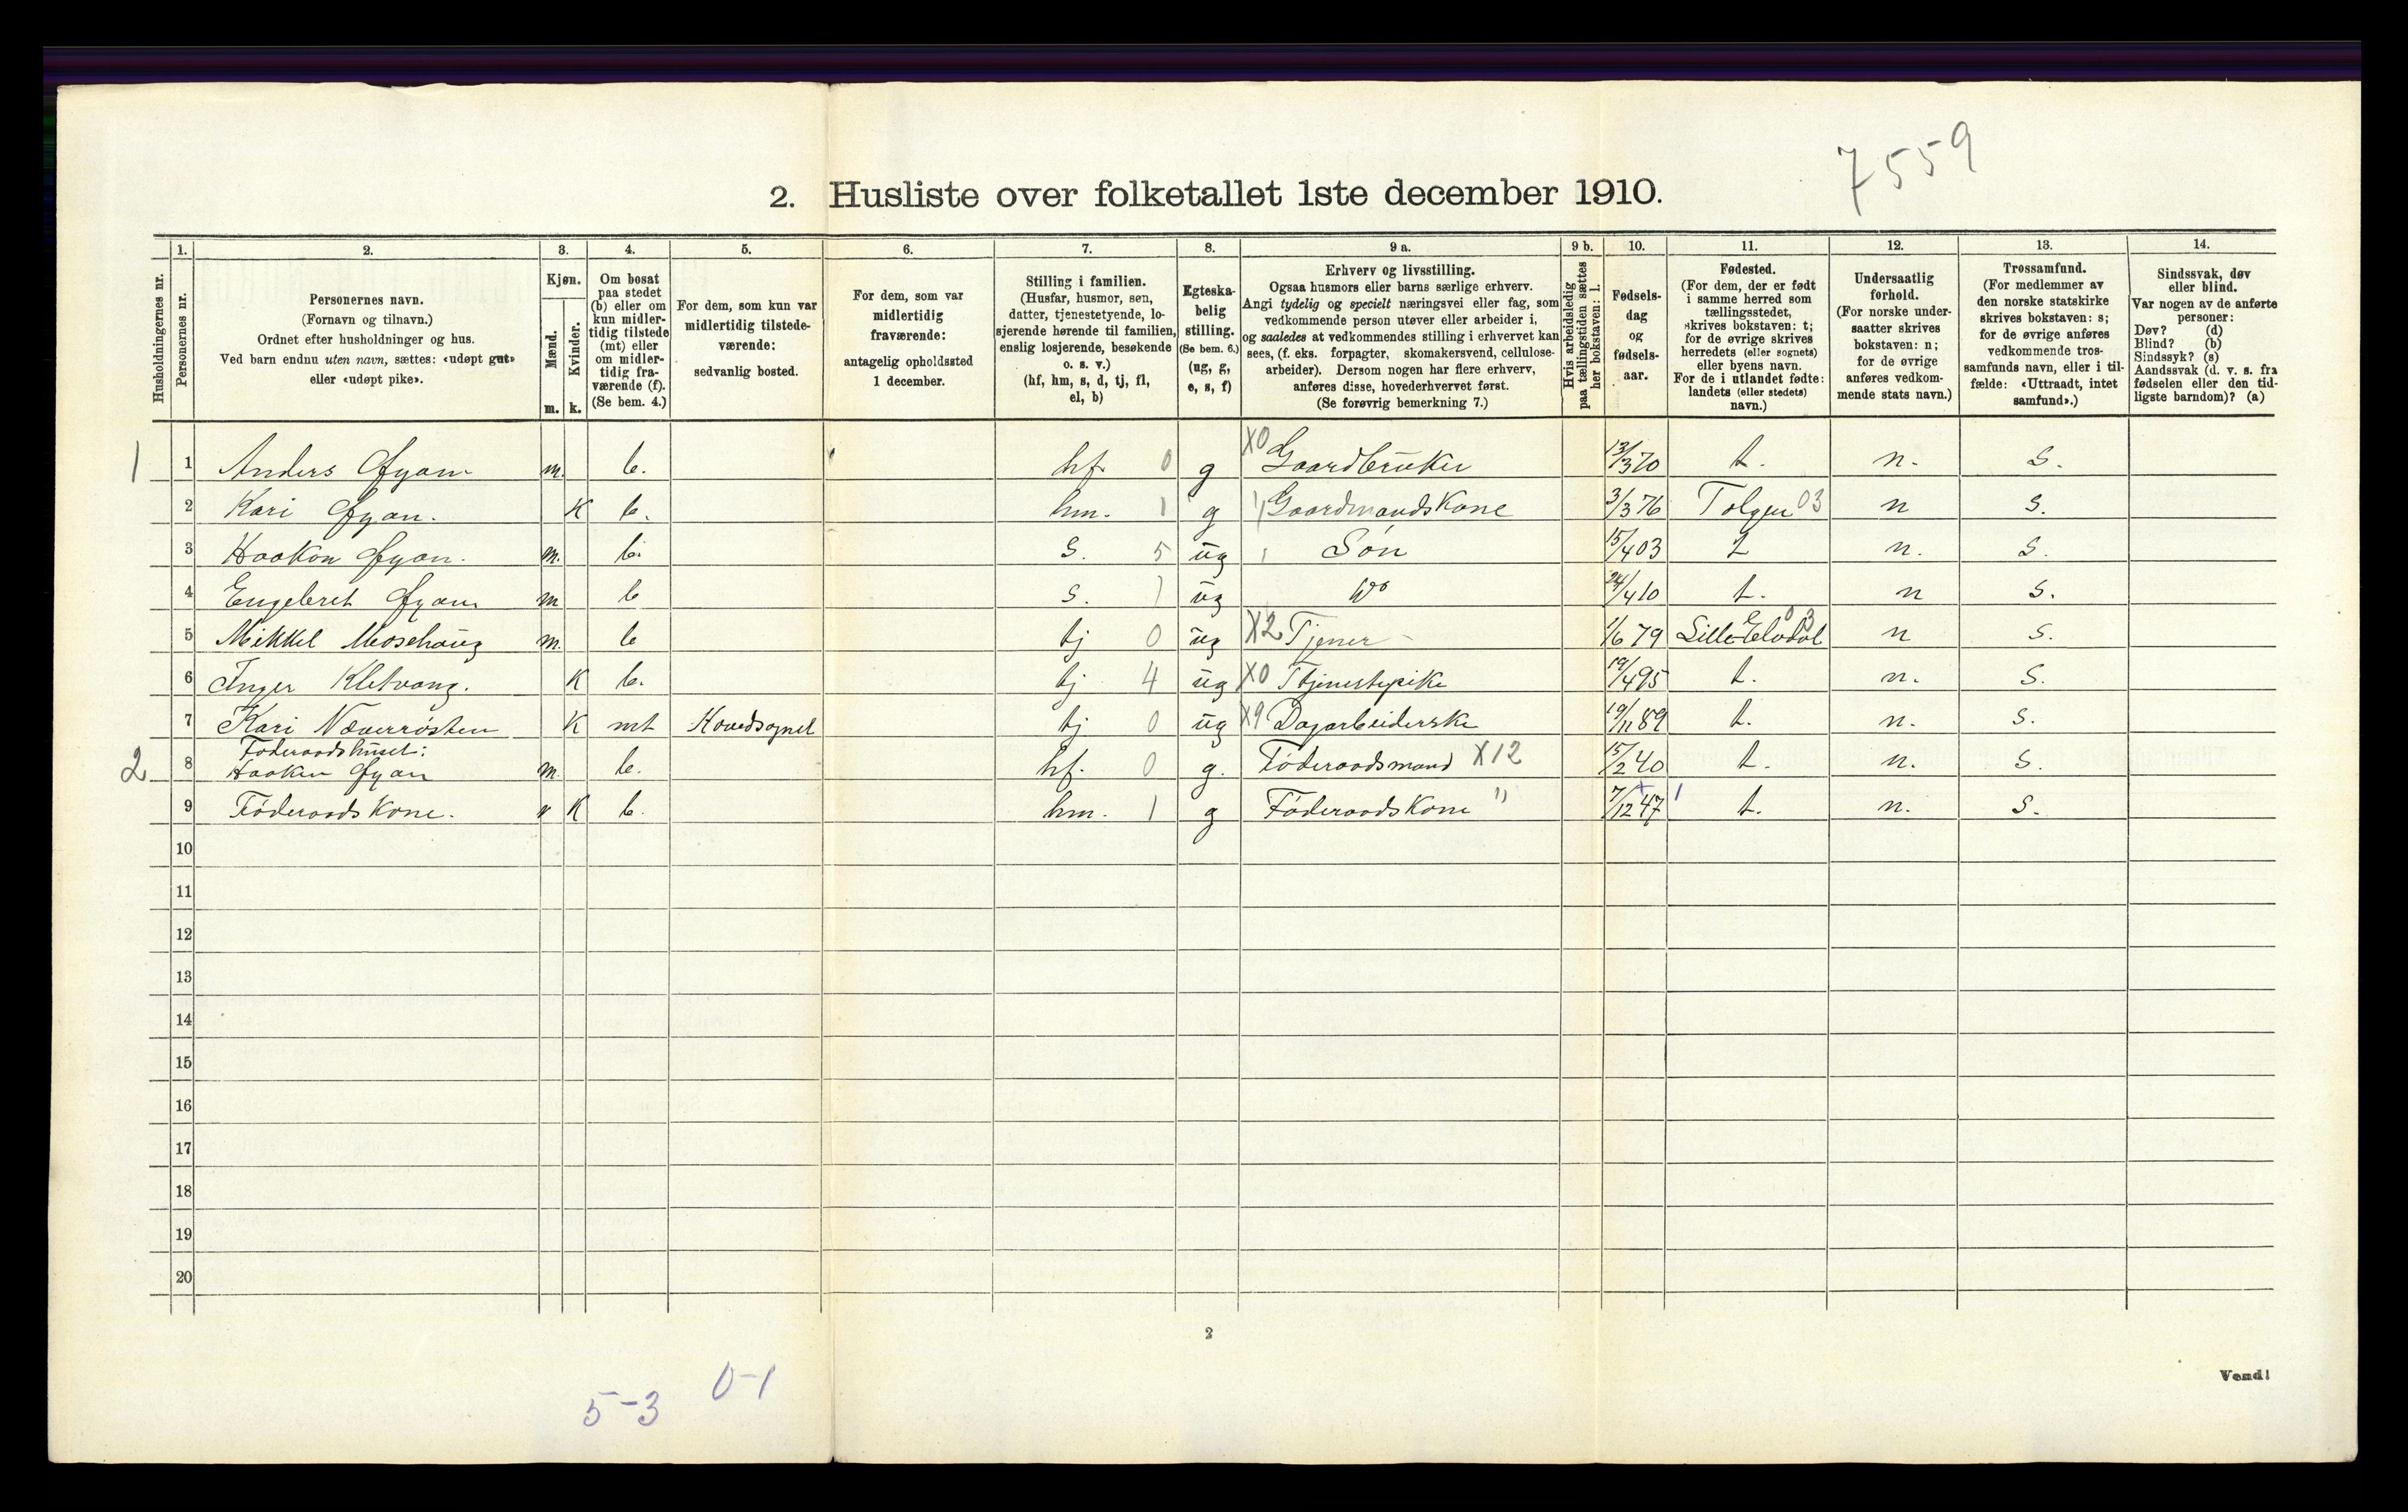 7559
2. Husliste over folketallet 1ste december 1910.
Husholdningernes nr.
1.
Personernes nr.
2.
Personernes navn.
(Fornavn og tilnavn.)
Ordnet efter husholdninger og hus.
Ved barn endnu uten navn, sættes: «udøpt gut»
eller «udøpt pike».
3.
Kjøn.
Mænd.
m.
Kvinder.
k.
4.
Om bosat
paa stedet
(b) eller om
kun midler-
tidig tilstede
(mt) eller
om midler-
tidig fra-
værende (f).
(Se bem. 4.)
5.
For dem, som kun var
midlertidig tilstede-
værende:
sedvanlig bosted.
6.
For dem, som var
midlertidig
fraværende:
antagelig opholdssted
1 december.
7.
Stilling i familien.
(Husfar, husmor, søn,
datter, tjenestetyende, lo-
sjerende hørende til familien,
enslig losjerende, besøkende
o. s. v.)
(hf, hm, s, d, tj, fl,
el, b)
8.
Egteska-
belig
stilling.
(Se bem. 6.)
(ug, g,
e, s, f)
9 a.
Erhverv og livsstilling.
Ogsaa husmors eller barns særlige erhverv.
Angi tydelig og specielt næringsvei eller fag, som
vedkommende person utøver eller arbeider i,
og saaledes at vedkommendes stilling i erhvervet kan
sees, (f. eks. forpagter, skomakersvend, cellulose-
arbeider). Dersom nogen har flere erhverv,
anføres disse, hovederhvervet først.
(Se forøvrig bemerkning 7.)
9 b.
Hvis arbeidsledig
paa tællingstiden sættes
her bokstaven: l.
10.
Fødsels-
dag
og
fødsels-
aar.
11.
Fødested.
(For dem, der er født
i samme herred som
tællingsstedet,
skrives bokstaven: t;
for de øvrige skrives
herredets (eller sognets)
eller byens navn.
For de i utlandet fødte:
landets (eller stedets)
navn.)
12.
Undersaatlig
forhold.
(For norske under-
saatter skrives
bokstaven: n;
for de øvrige
anføres vedkom-
mende stats navn.)
13.
Trossamfund.
(For medlemmer av
den norske statskirke
skrives bokstaven: s;
for de øvrige anføres
vedkommende tros-
samfunds navn, eller i til-
fælde: «Uttraadt, intet
samfund».)
14.
Sindssvak, døv
eller blind.
Var nogen av de anførte
personer:
Døv? (d)
Blind? (b)
Sindssyk? (s)
Aandssvak (d. v. s. fra
fødselen eller den tid-
ligste barndom)? (a)
1 1 Anders m. b. hf 0 g X0 Gaardbruker 13/3 70 t. n. s.
2 Kari K b. hm. 1 g Gaardmandskone 3/3 76 Tolgen 03 n s.
3 Haakon m. b. s. 5 ug Søn 15/4 03 t n. s.
4 Engebret m b s. 1 ug do 24/4 10 t. n s.
5 Mikkel Mosehaug m. b tj 0 ug X2 Tjener 1/6 79 Lille Elvdal 03 n s.
6 Inger Kletvang. K b. tj 4 ug X0 Tjenestepike 19/4 95 t. n. s.
7 Kari Næverrøsten K mt Hovedsognet tj 0 ug X9 Dagarbeiderske 19/11 89 t. n. s.
Føderaadshuset:
2 8 Haaken m. b. hf. 0 g. Føderaadsmand X12 15/2 40 t. n. s.
9 Føderaadskone. K b. hm. 1 g Føderaadskone " 7/12 47 t. n. s.
10
11
12
13
14
15
16
17
18
19
20
2
Vend!
0-1
5-3